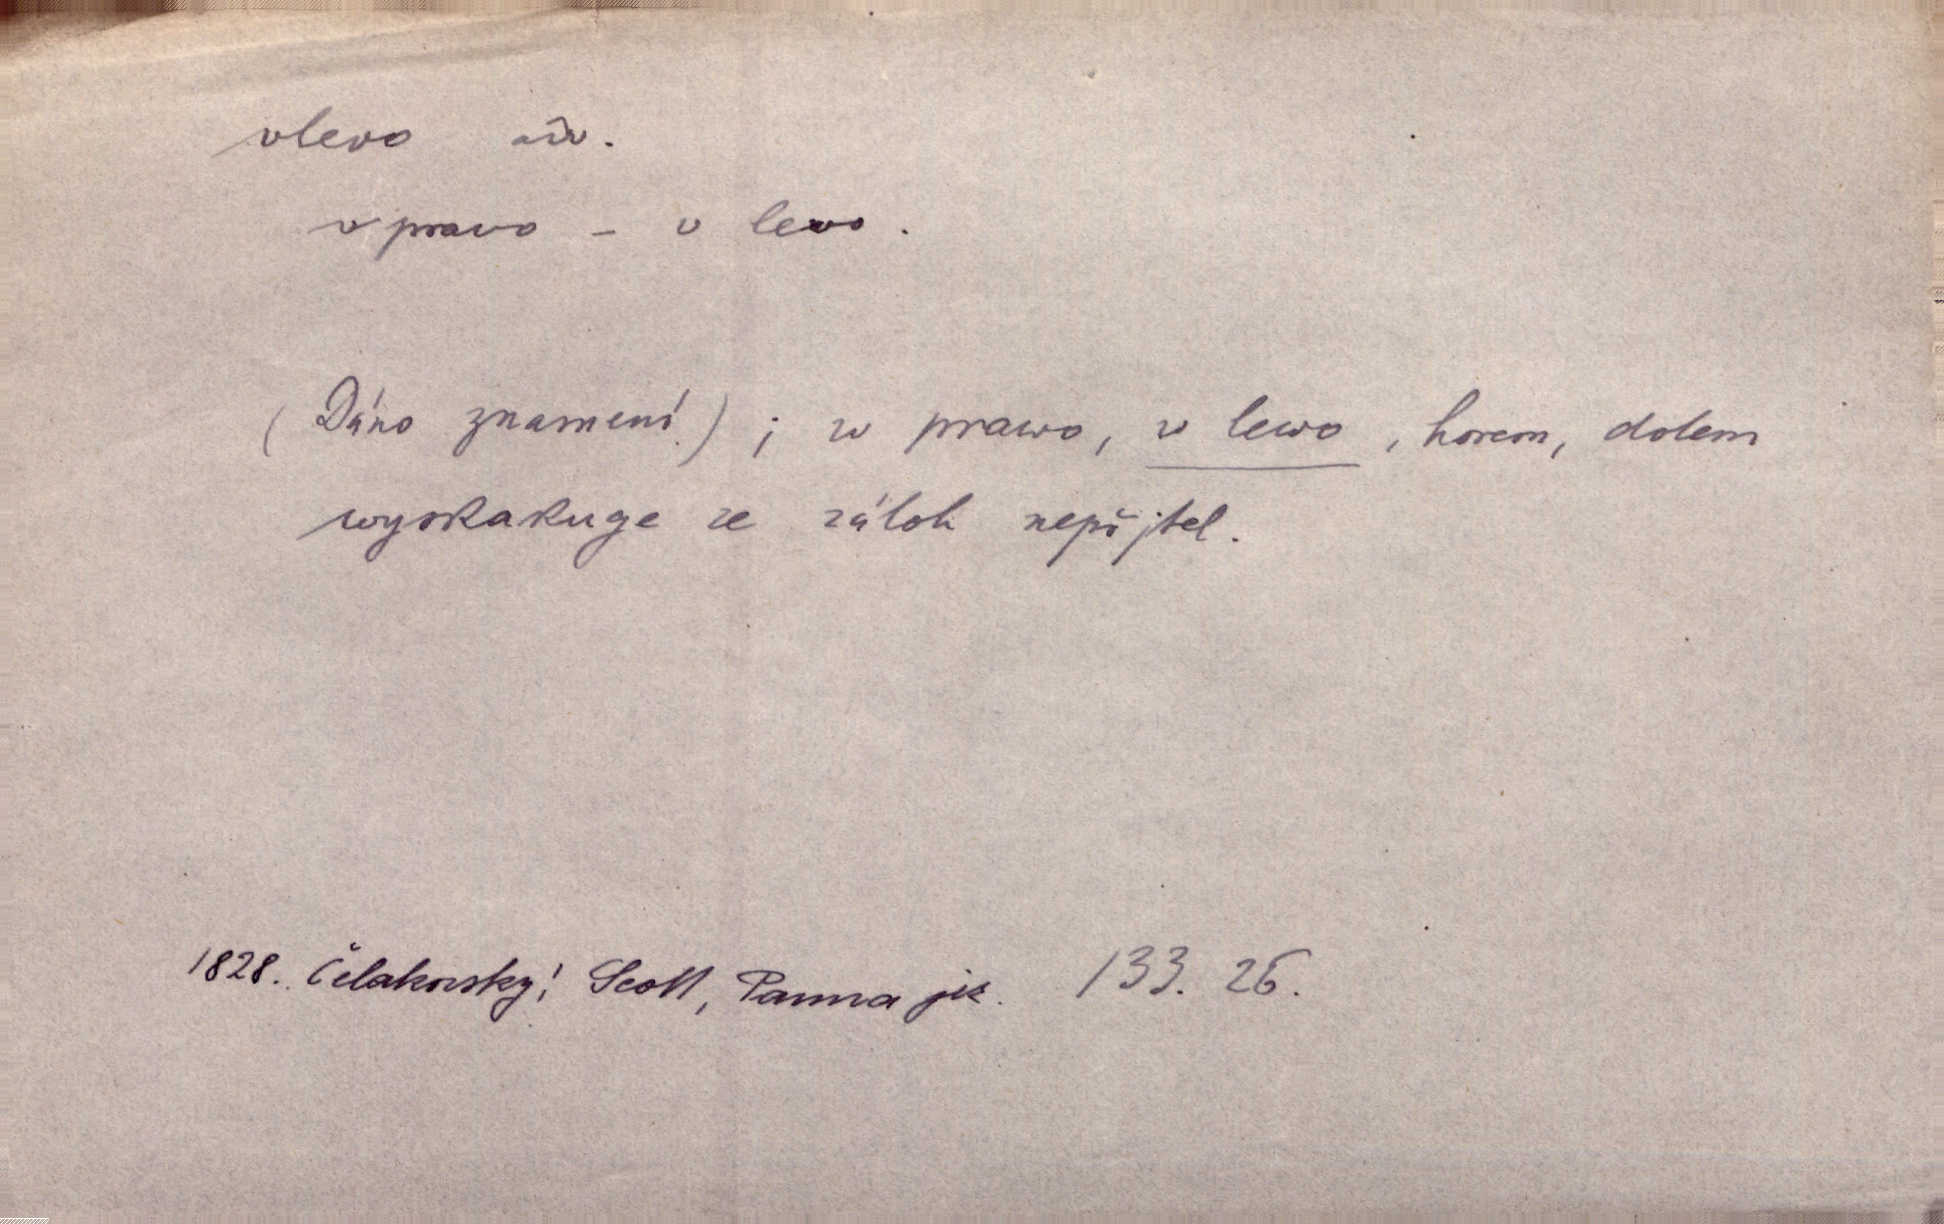 vlevo adv.
v pravo – v levo.
(Dáno znamení) ; w prawo, w lewo, horem, dolem
wyskakuge ze záloh nepřjtel.
1828. Čelakovský: Scott, Panna jez. 133. 26.